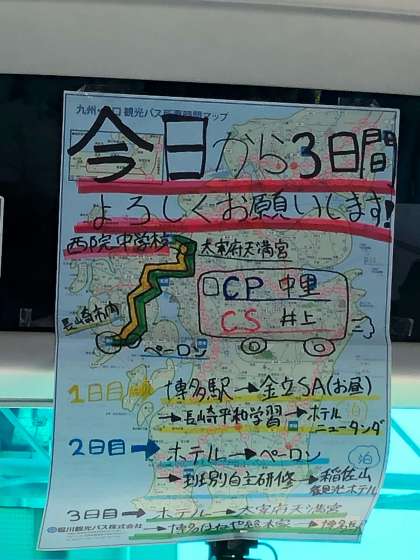 九州・山口 観光バス所要時間マップ
今日から3日間
よろしくお願いします!
西院中学校
太宰府天満宮
長崎市内
ペーロン
CP 中里
CS 井上
1日目
博多駅→金立SA(お昼)
→長崎平和学習→ホテル
ニュータンダ
2日目→ホテル→ペーロン
→班別自主研修→稲佐山
泊
ホテル
3日目→ホテル→太宰府天満宮
堀川観光バス株式会社